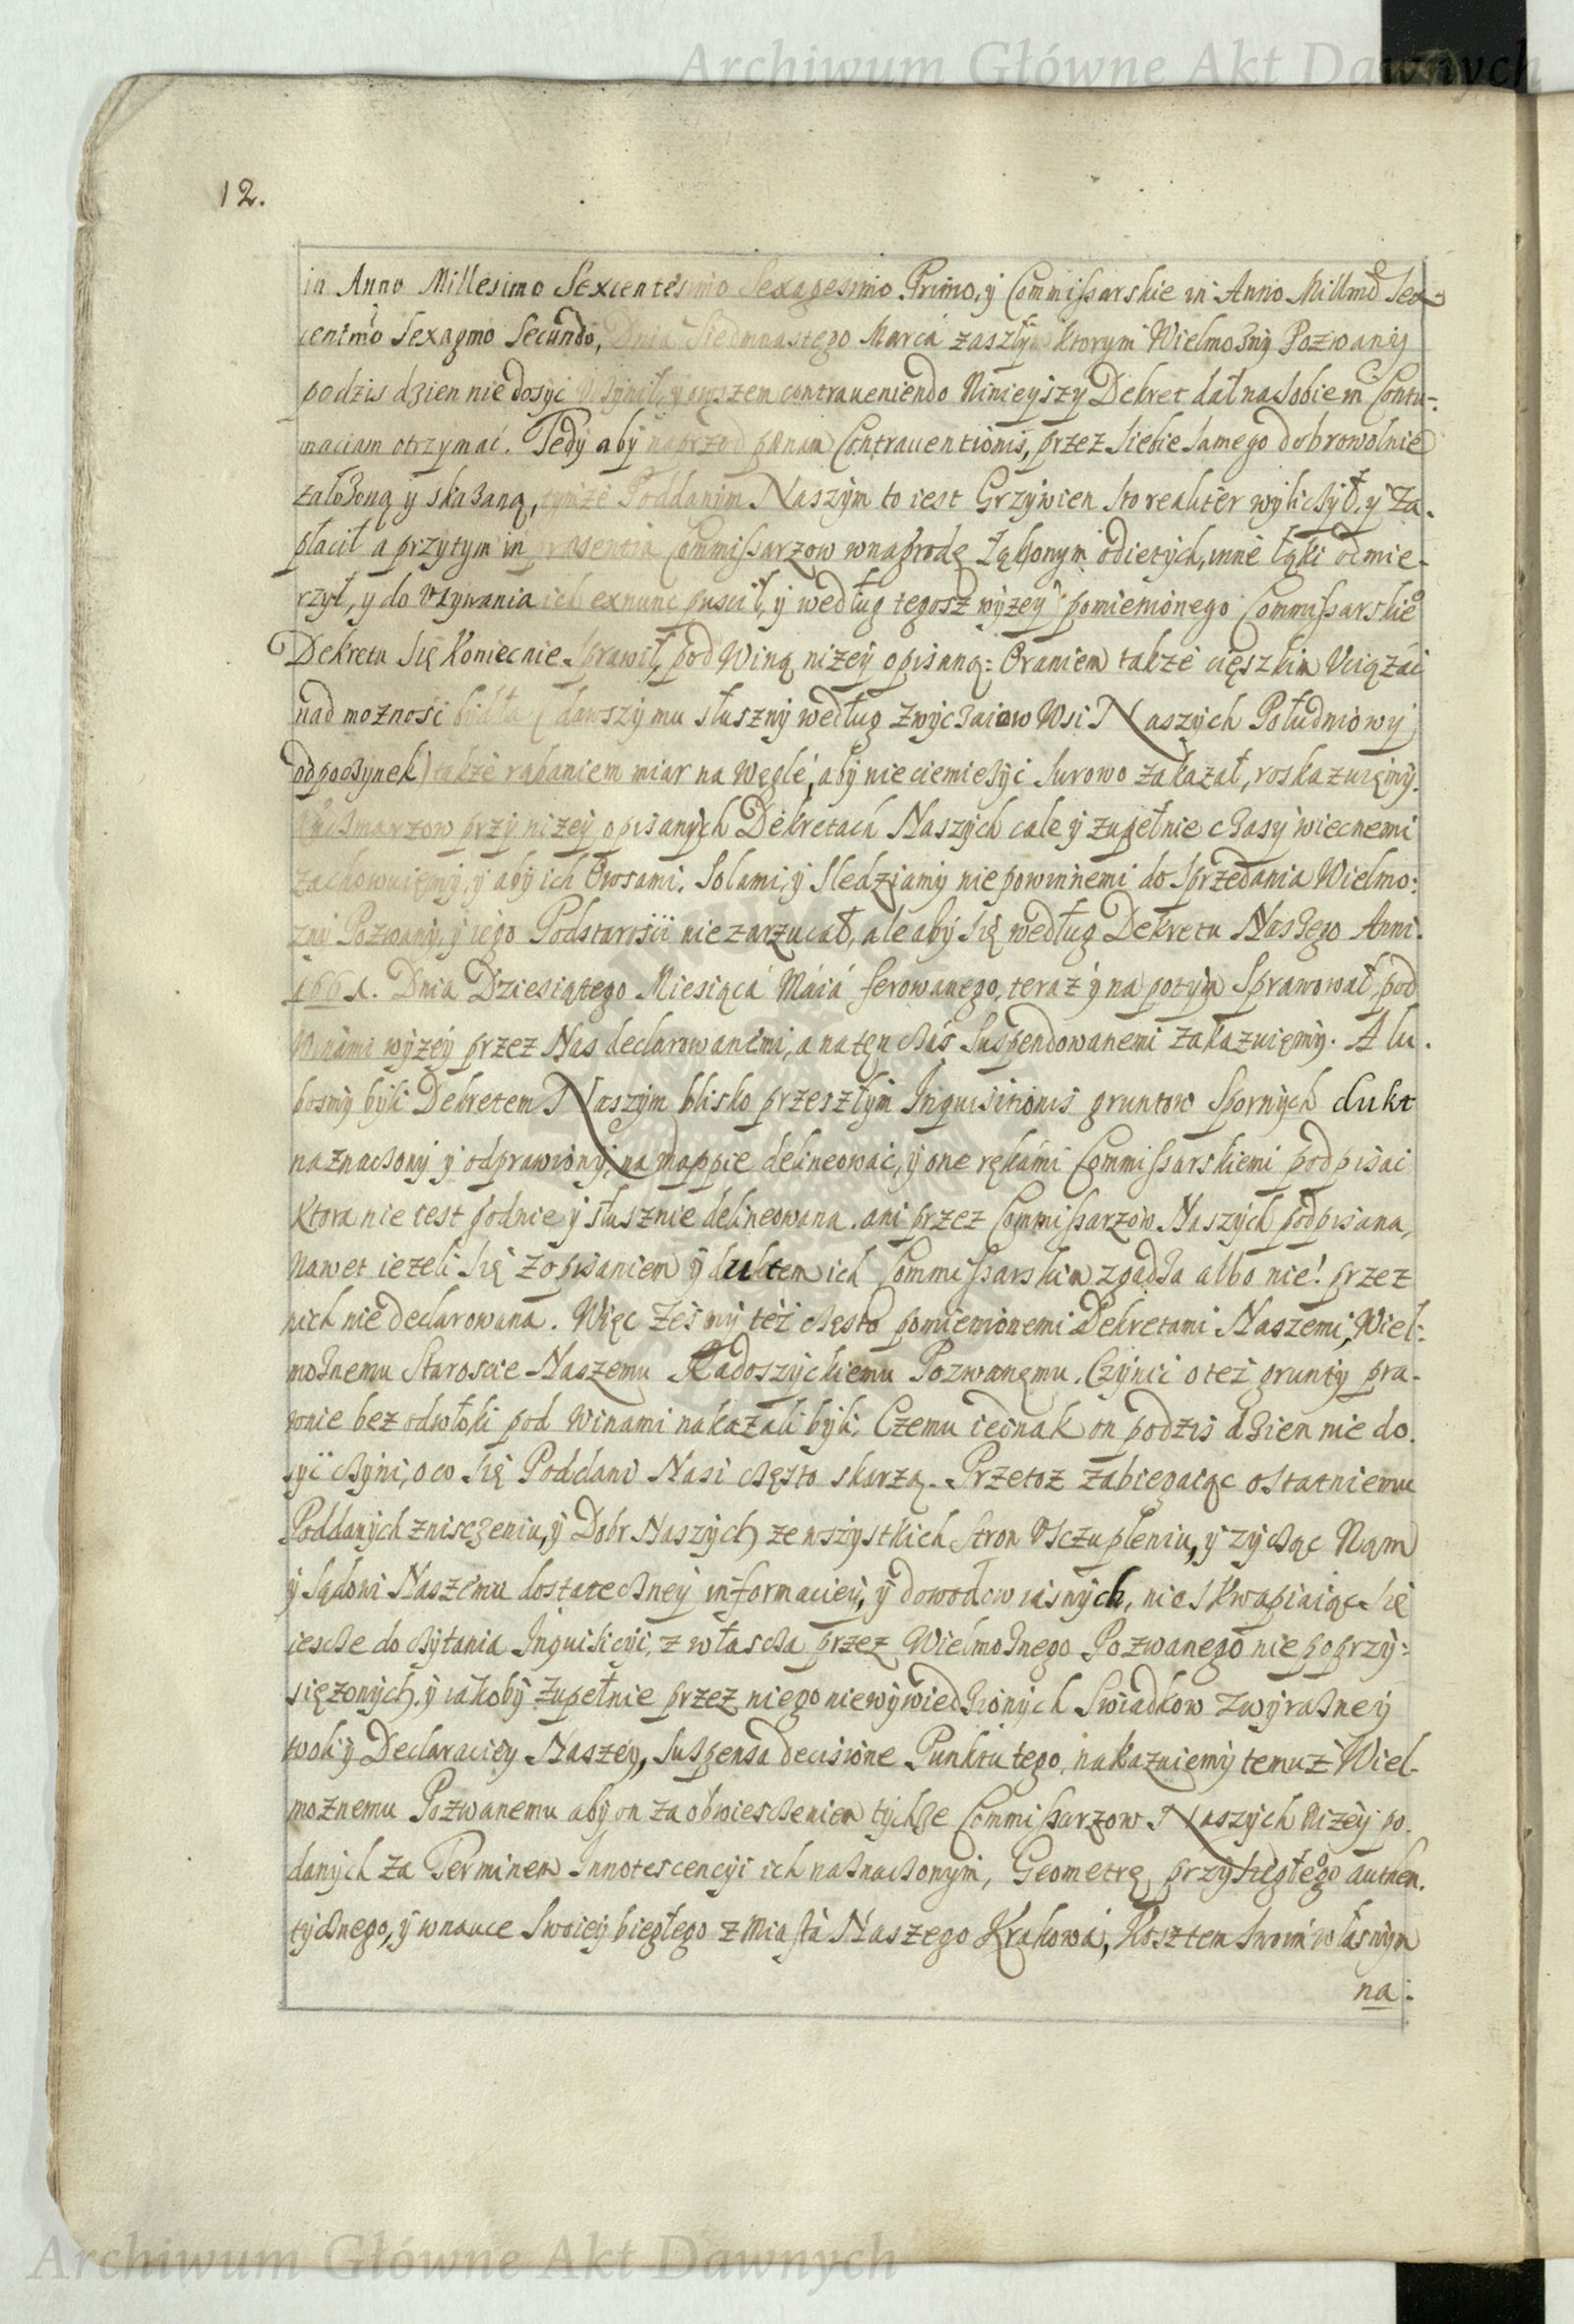 Archiwum Główne Akt Dawnych
12.
in Anno Millesimo Sexcentesimo Sexagesimo Primo, y Commissarskie in Anno Millmo Sex-
centmo Sexagmo Secundo, Dnia Siedmnastego Marca zaszłym ktorym Wielmożny Pozwany
podzis dzien niedosyc uczynił, y owszem contraueniendo Ninieyszy Dekret dał na sobie in Contu-
maciam otrzymać. Tedy aby naprzod pænam Contrauentionis, przez siebie samego dobrowolnie
założoną y skazaną, tymże Poddanym Naszym to iest Grzywien sto realiter wyliczył, y Za-
płacił a przytym in præsentia Commissarzow wnagrodę Łąk onym odietych, inne łąki odmie-
rzył, y do Używania ich exnunc puscił, y według tegosz wyżey pomienionego Commissarskieo
Dekretu się koniecnie sprawił, pod Winą niżey opisaną: Oraniem także cięszkim Uciążać
nad możnosc bydła (dawszy mu słuszny według zwyczaiow Wsi Naszych Południowy
odpoczynek) także rąbaniem miar na węgle, aby nieciemiężyć surowo zakazał, roskazuięmy.
Kaczmarzow przy niżey opisanych Dekretach Naszych cale y zupełnie czasy wiecnemi
zachowuięmy, y aby ich Owsami, Solami, y Sledziamy niepowinnemi do sprzedania Wielmo:
żny Pozwany, y iego Podstarosci niezarzucał, ale aby się według Dekretu Naszego Anni.
1661. Dnia Dziesiątego Miesiąca Maia ferowanego, teraz y na potym Sprawował, pod
Winami wyżey przez Nas declarowanemi, a na tęn czas suspendowanemi zakazuięmy. A lu.
bosmy byli Dekretem Naszym blisko przeszłym Inquisitionis gruntow Spornych dukt
naznaczony y odprawiony, na mappie delineować, y one rękami Commissarskiemi podpisac
ktora nie iest godnie y słusznie delineowana, ani przez Commissarzow Naszych podpisana,
Nawet ieżeli się z opisaniem y duktem ich Commissarskim zgadza albo nie! przez
nich nie declarowana. Więc żeśmy też często pomienionemi Dekretami Naszemi, Wiel:
możnemu Staroscie Naszemu Radoszyckiemu Pozwanęmu, Czynić o też grunty pra-
wnie bez odwłoki pod Winami nakazali byli, Czemu iednak on podzis dzien nie do.
syć czyni, o co się Poddani Nasi często skarzą. Przetoż zabiegaiąc ostatniemu
Poddanych zniszczeniu, y Dobr Naszych ze wszystkich stron Usczupleniu, y życząc Nąm
y sądowi Naszemu dostatecżney informaciey, y dowodow iasnych, nie skwapiaiąc się
iescze do czytania Inquisicyi, z włascza przez Wielmożnego Pozwanego nie poprzy:
siężonych, y iakoby zupełnie przez niego niewywiedzionych Swiadkow z wyrażney
woli y Declaraciey Naszey, suspensa decisione Punktu tego, nakazuiemy temuż Wiel-
możnemu Pozwanemu aby on za obwiesczeniem tychże Commissarzow Naszych niżey po.
danych za Terminem Innotescencyi ich naznaczonym, Geometrę przysięgłego authen.
tycznego, y wnauce Swoiey biegłego z Miasta Naszego Krakowa, Kosztem swoim własnym
na:
Archiwum Główne Akt Dawnych